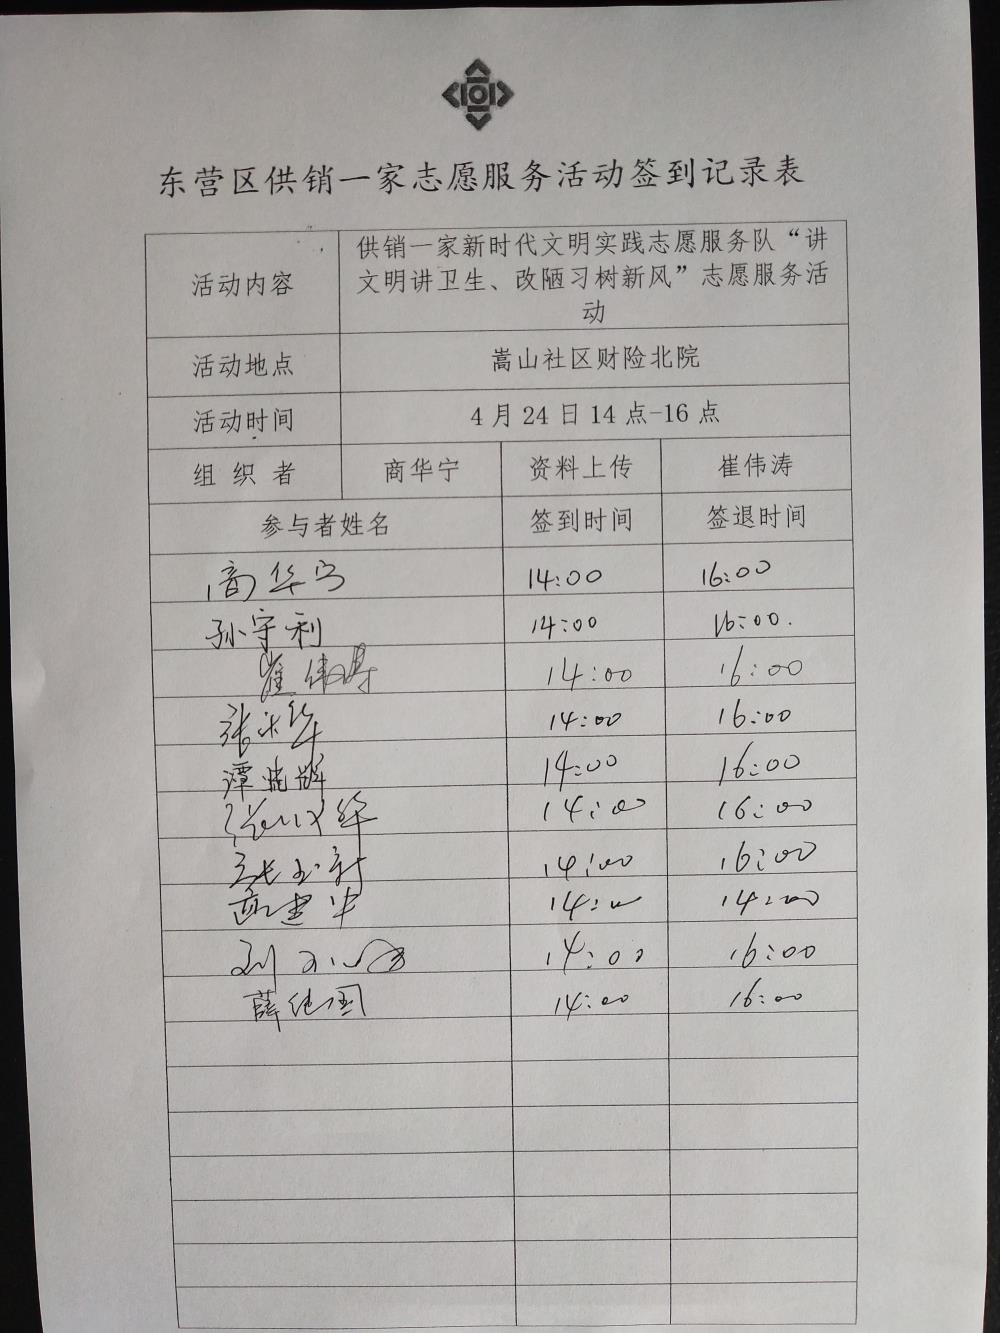 东营区供销一家志愿服务活动签到记录表
活动内容
供销一家新时代文明实践志愿服务队“讲
文明讲卫生、改陋习树新风”志愿服务活
动
活动地点 嵩山社区财险北院
活动时间 4月24日14点-16点
组织者 商华宁 资料上传 崔伟涛
参与者姓名 签到时间 签退时间
商华宁 14:00 16:00
孙宇利 14:00 16:00.
崔伟涛 14:00 16:00
张永华 14:00 16:00
谭晓辉 14:00 16:00
14:00 16:00
14:00 16:00
14:00 14:00
刘 14:00 16:00
薛继国 14:00 16:00